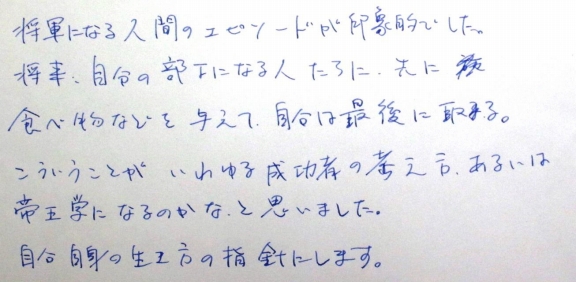 将軍になる人間のエピソードが印象的でした。
将来、自分の部下になる人たちに、先に
食べ物などを与えて、自分は最後に取る。
こういうことが いわゆる成功者の考え方、あるいは
帝王学になるのかな、と思いました。
自分自身の生き方の指針にします。